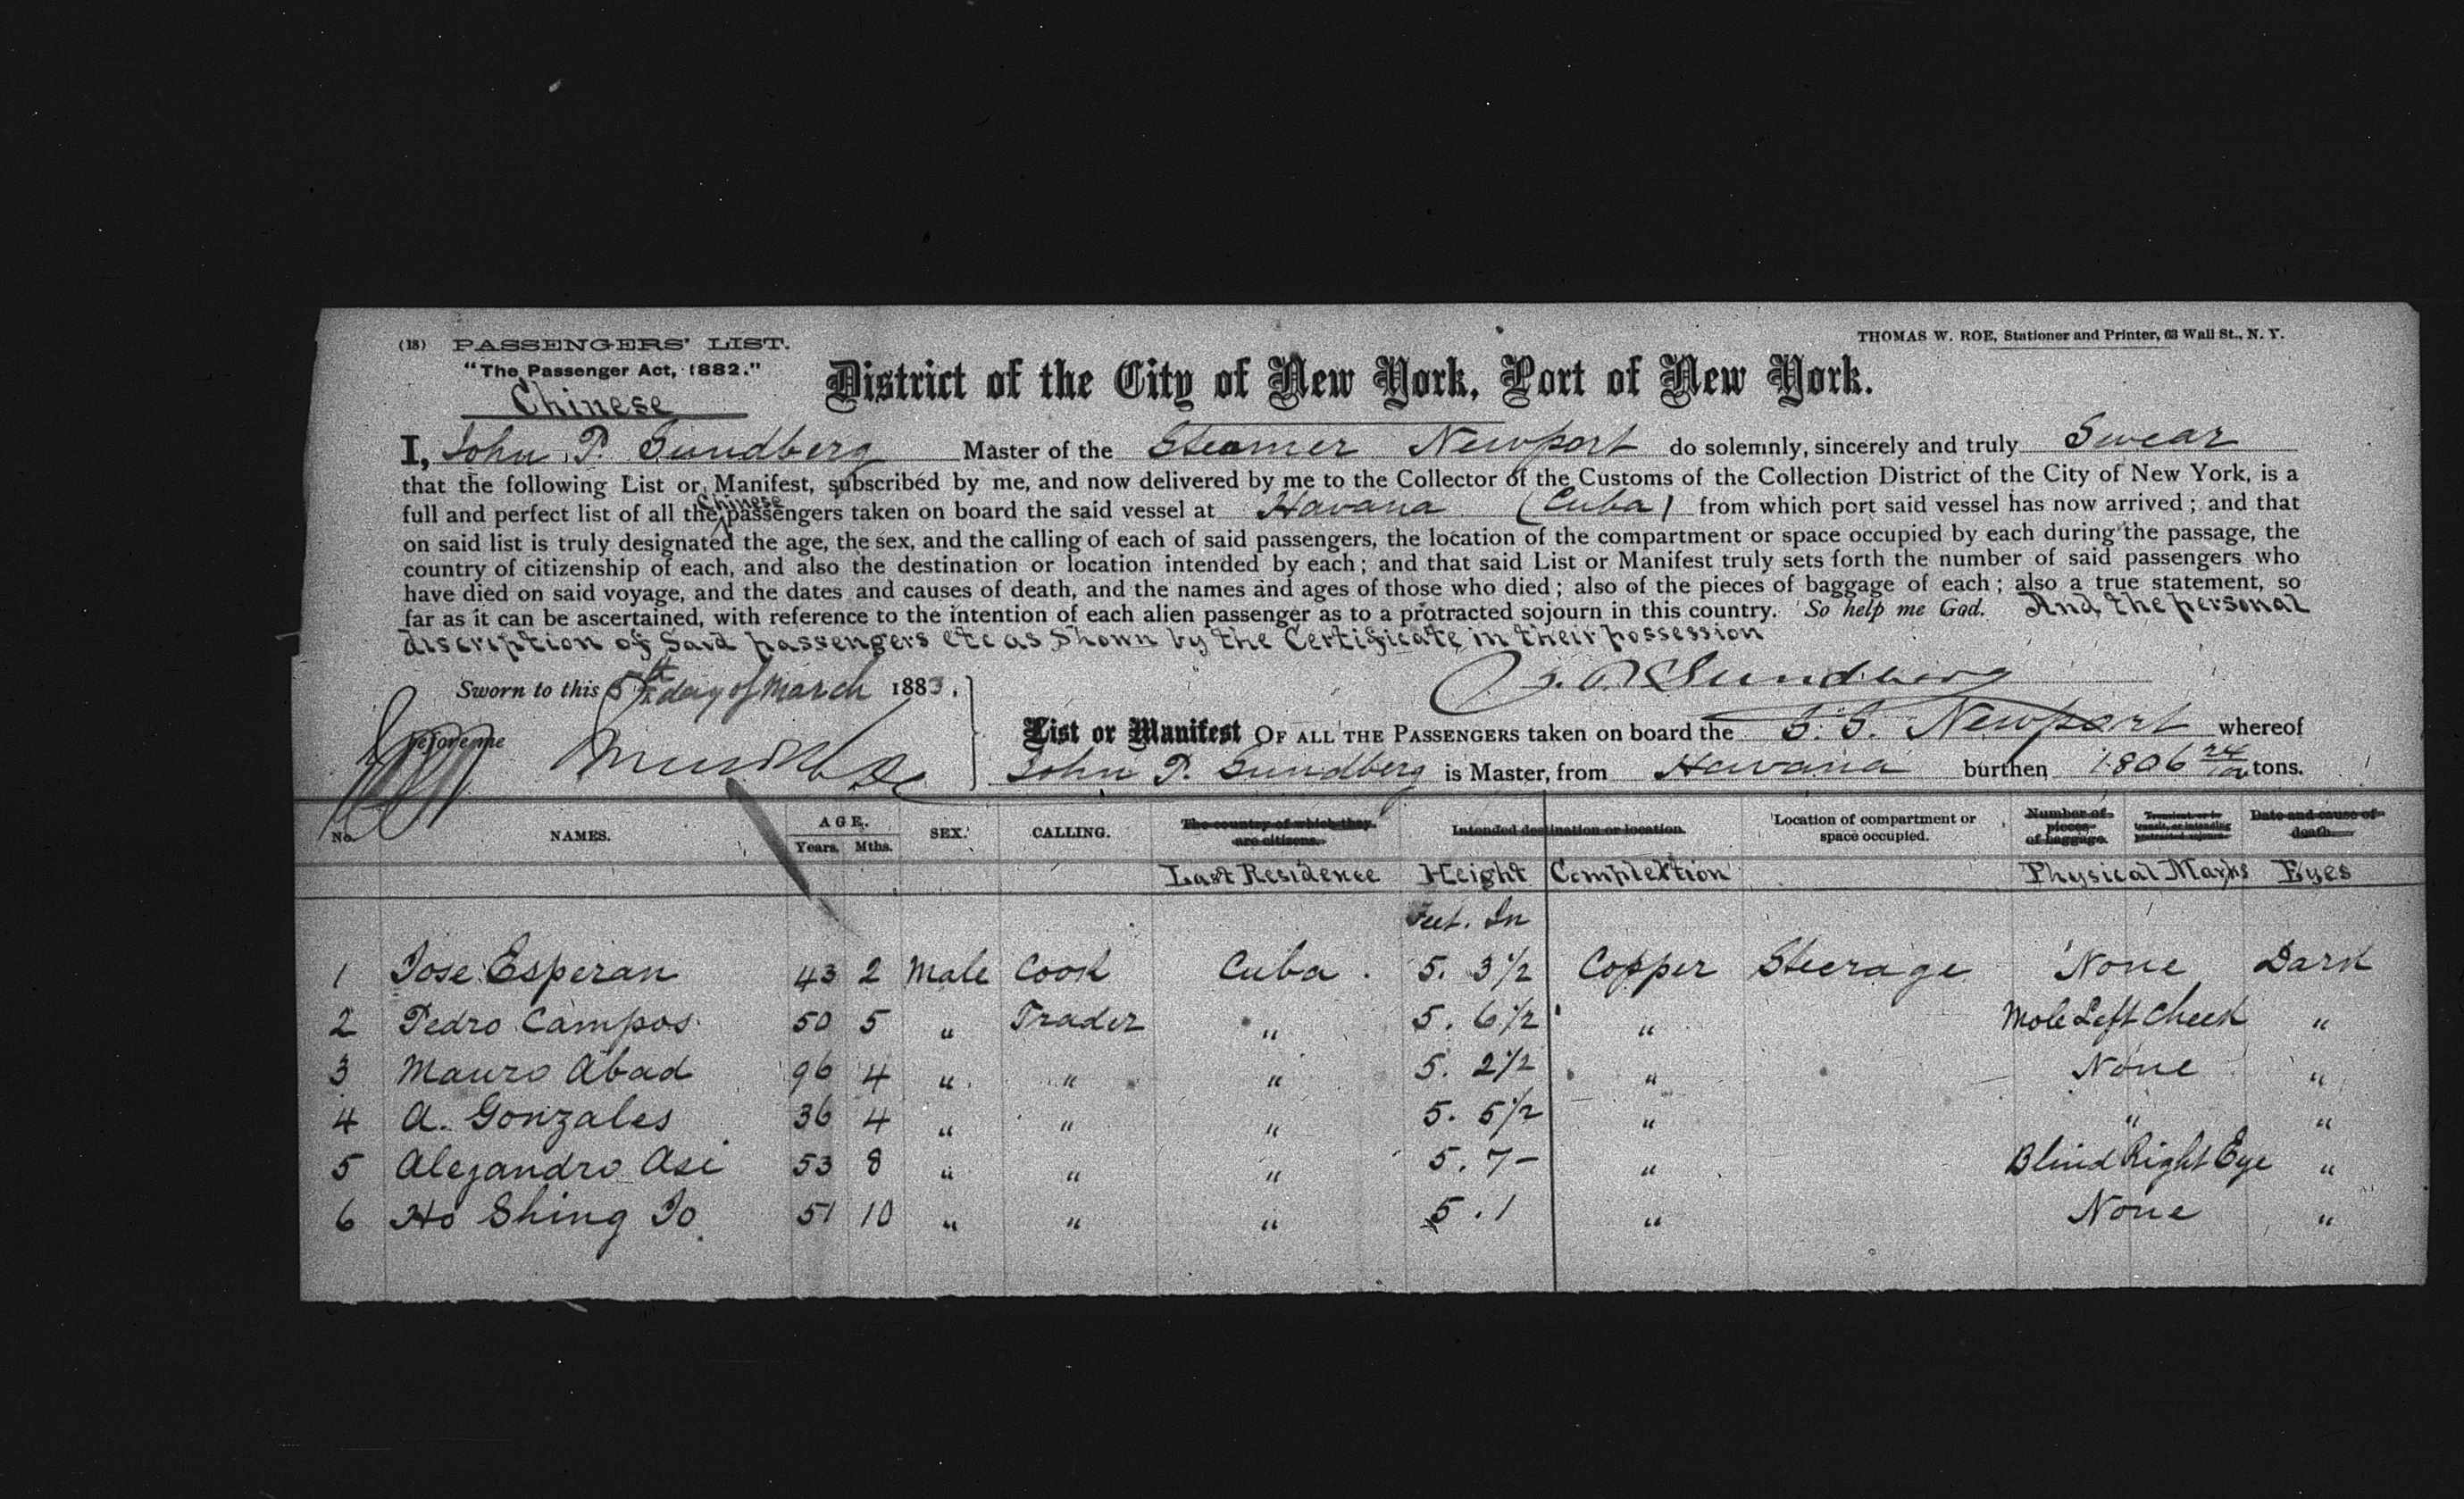 (18) PASSENGERS' LIST.
THOMAS W. ROE, Stationer and Printer, 63 Wall St., N. Y.
"The Passenger Act, 1882."
Chinese
District of the City of New York, Port of New York.
I, John P. Sundberg Master of the Steamer Newport do solemnly, sincerely and truly Swear
that the following List or Manifest, subscribed by me, and now delivered by me to the Collector of the Customs of the Collection District of the City of New York, is a
full and perfect list of all the Chinese passengers taken on board the said vessel at Havana (Cuba) from which port said vessel has now arrived; and that
on said list is truly designated the age, the sex, and the calling of each of said passengers, the location of the compartment or space occupied by each during the passage, the
country of citizenship of each, and also the destination or location intended by each; and that said List or Manifest truly sets forth the number of said passengers who
have died on said voyage, and the dates and causes of death, and the names and ages of those who died; also of the pieces of baggage of each; also a true statement, so
far as it can be ascertained, with reference to the intention of each alien passenger as to a protracted sojourn in this country. So help me God. And the personal
discription of Said passengers etc as Shown by the Certificate in their possession
Sworn to this 5th day of March 1883.
J. P. Sundberg
before me
List or Manifest OF ALL THE PASSENGERS taken on board the S. S. Newport whereof
John P. Sundberg is Master, from Havana burthen 1806 24/100 tons.
No. NAMES. AGE. Years. Mths. SEX. CALLING. The country of which they are citizens. Intended destination or location. Location of compartment or space occupied. Number of pieces of baggage. Date and cause of death.
Last Residence Height Complextion Physical Marks Eyes
Feet. In
1 Jose Esperan 43 2 Male Cook Cuba . 5. 3 1/2 Copper Steerage None Dark
2 Pedro Campos 50 5 " Trader " 5. 6 1/2 " Mole Left Cheek "
3 Mauro Abad 96 4 " " " 5. 2 1/2 " None "
4 A. Gonzales 36 4 " " " 5. 5 1/2 " " "
5 Alejandro Asi 53 8 " " " 5. 7 – " Blind Right Eye "
6 Ho Shing Jo 51 10 " " " 5. 1 " None "